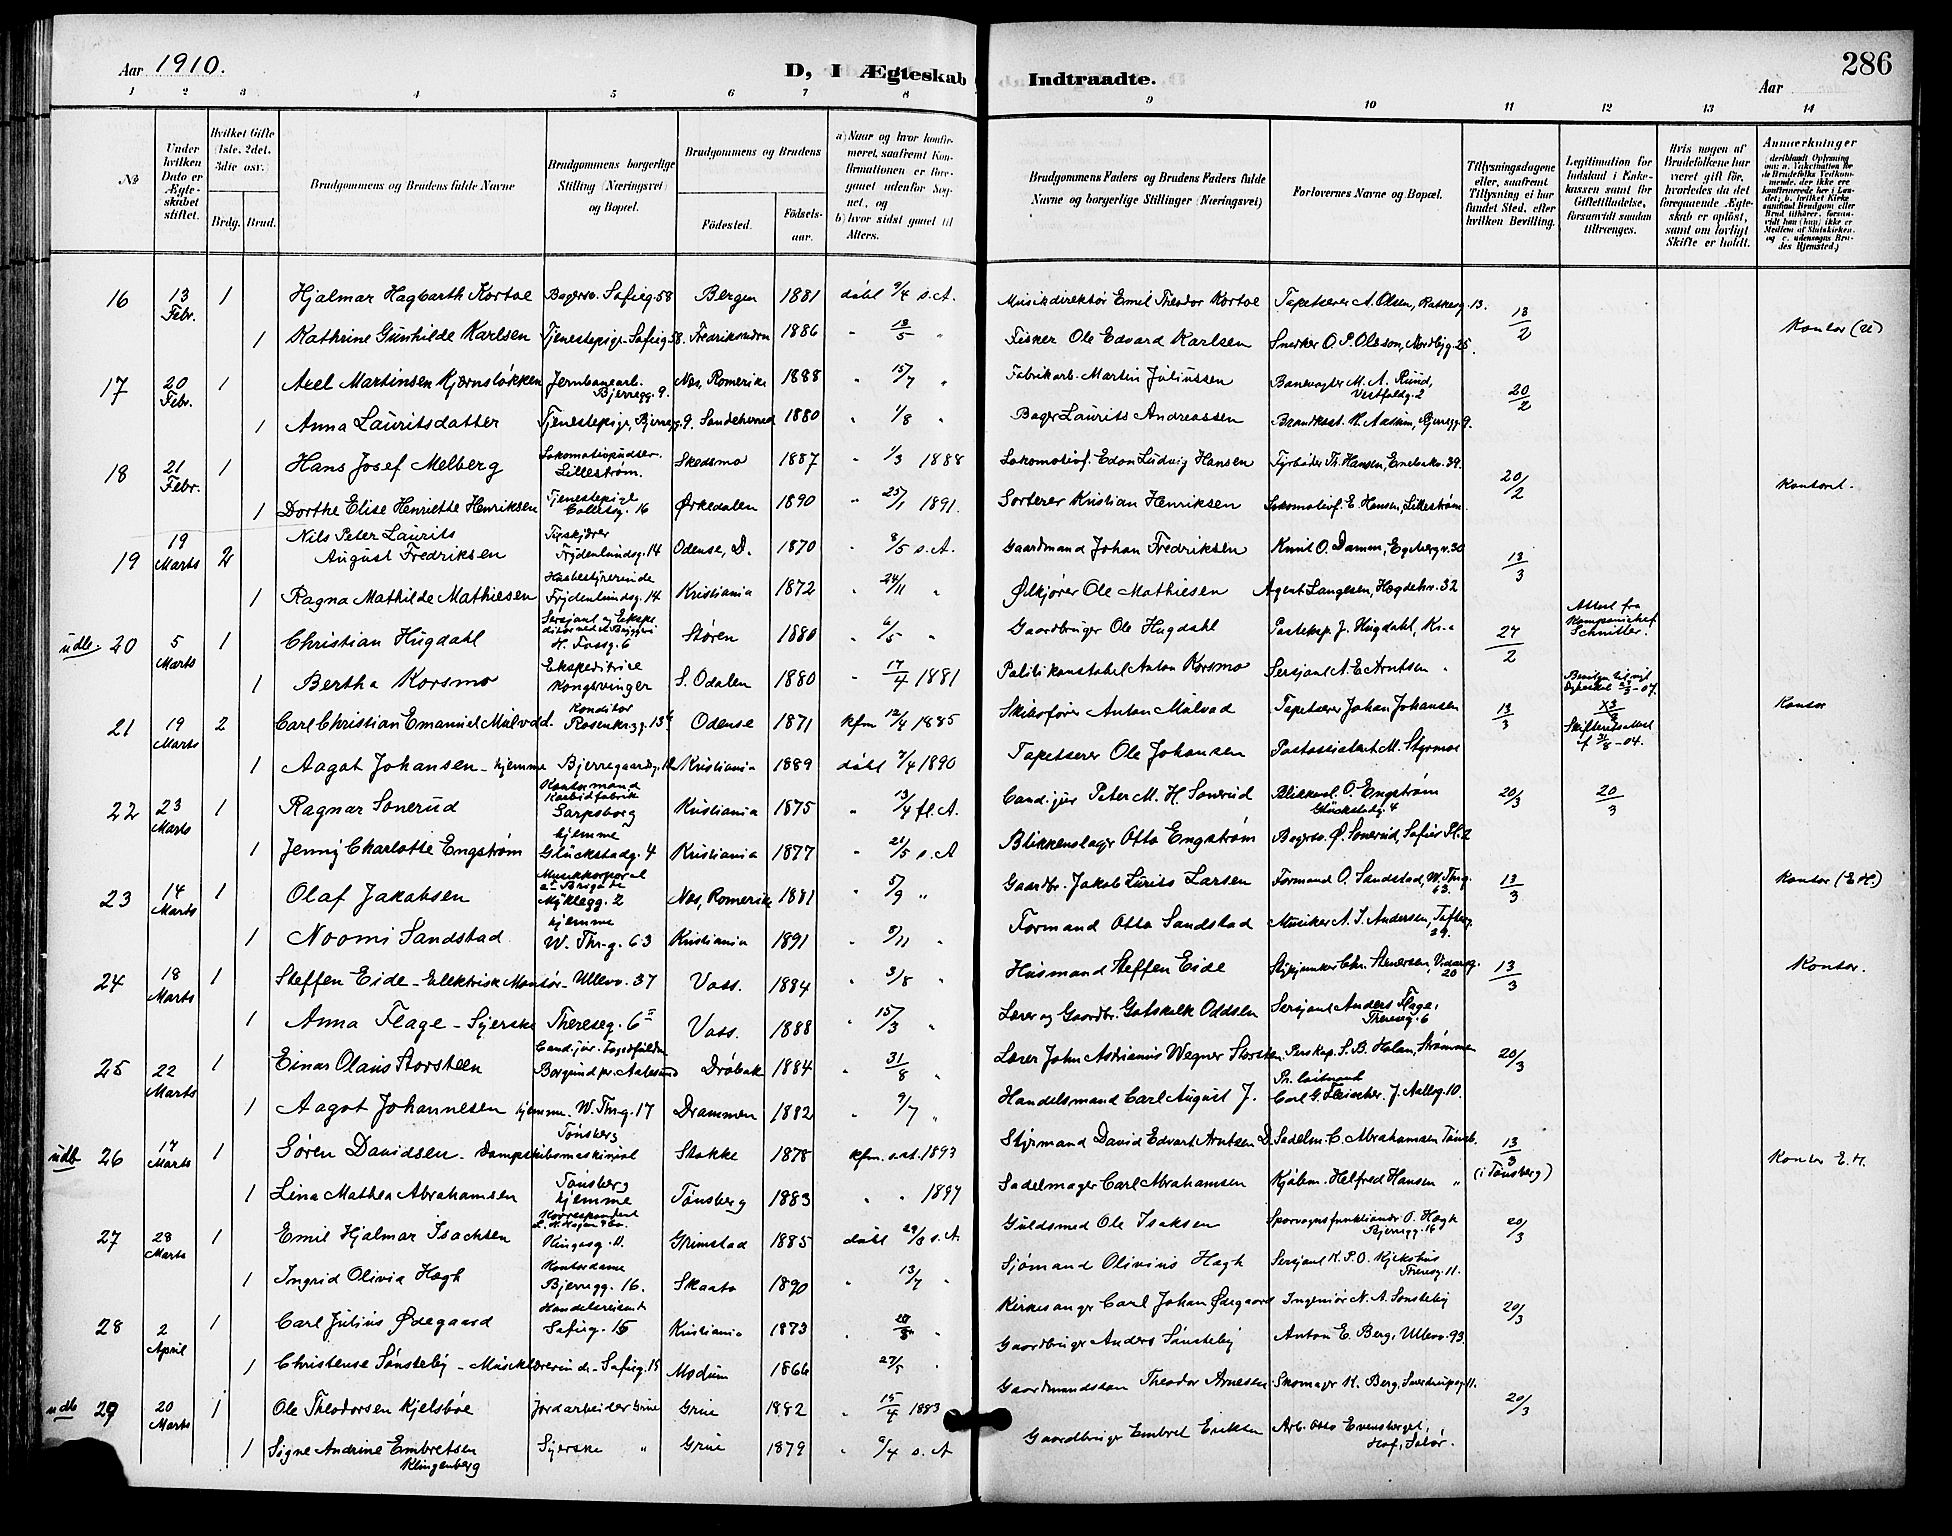 Aar 1910.
D, I Ægteskab Indtraadte.
286
Aar
1 2 3 4 5 6 7 8 9 10 11 12 13 14
No
Under hvilken Dato er Ægteskabet stiftet.
Hvilket Gifte (1ste, 2det, 3die osv.
Brdg. Brud.
Brudgommens og Brudens fulde Navne
Brudgommens borgerlige Stilling (Næringsvei) og Bopæl.
Brudgommens og Brudens
Fødested.
Fødselsaar.
a) Naar og hvor konfirmeret, saafremt Konfirmationen er foregaaet udenfor Sognet, og
b) hvor sidst gaaet til Alters.
Brudgommens Faders og Brudens Faders fulde Navne og borgerlige Stillinger (Næringsvei)
Forlovernes Navne og Bopæl.
Tillysningsdagene eller, saafremt Tillysning ei har fundet Sted, efter hvilken Bevilling.
Legitimation for Indskud i Enkekassen samt for Giftetilladelse, forsaavidt saadan tiltrænges.
Hvis nogen af Brudefolkene har været gift før, hvorledes da det foregaaende Ægteskab er opløst, samt om lovligt Skifte er holdt.
Anmærkninger
16 13 Febr. 1 Hjalmar Hagbarth Kortoe Bagersv. Sofieg. 58 Bergen 1881 døbt 9/4 s.A. Musikdirektør Emil Theodor Kortoe Tapetserer A. Olsen, Ratkesg. 13. 13/2
1 Kathrine Gunhilde Karlsen Tjenestepige Sofieg. 58. 1886 " 13/5 " Fisker Ole Edvard Karlsen Snedker O. P. Olsson, Nordbyg. 25.
17 20 Febr. 1 Axel Martinsen Kjærnsløkken Jernbanearb. Bjerregg. 9. Næs, Romerike 1888 " 15/7 " Fabrikarb. Martin Juliussen Banevogter M. A. Ruud, Vestfoldg. 2 20/2
1 Anna Lauritsdatter Tjenestepige, Bjerregg. 9. Sandeherred 1880 " 1/8 " Bager Laurits Andreassen
18 21 Febr. 1 Hans Josef Melberg Lokomotivpudser. Lillestrøm. Skedsmo 1887 " 1/3 1888 Lokomotivf. Edon Ludvig Hansen Fyrbøder Th. Hansen, 39. 20/2 Kontoret.
1 Dorthe Elise Henriette Henriksen Tjenestepige 16 Ørkedalen 1890 " 25/1 1891. Sorterer Kristian Henriksen Lokomotivf. E. Hansen, Lillestrøm.
19 19 Marts 2 Nils Peter Laurits August Fredriksen Frydenlundsg. 14 Odense, D. 1870 " 8/5 s.A. Gaardmand Johan Fredriksen Knut O. Damm, Egebergv. 30 13/3
1 Ragna Mathilde Mathiesen Husbestyrerinde Frydenlundsg. 14 Kristiania 1872 " 24/11 " Ølkjører Ole Mathiesen Agent Langesen, Hegdehv. 32
udb. 20 5 Marts 1 Christian Hugdahl Sersjant og Ekspeditør ved et Bryggeri H. Fossg. 6 Støren 1880 " 6/5 " Gaardbruger Ole Hugdahl Posteksp. J. Hugdahl, Kr.a 27/2 Attest fra Kompanichef Schnitler.
1 Bertha Korsmo Ekspeditrice Kongsvinger S. Odalen 1880 " 17/4 1881 Politikonstabel Anton Korsmo Sersjant A. E. Arntsen "
21 19 Marts 2 Carl Christian Emanuel Mulvad. Konditor Rosenkrzg. 13 Odense 1871 kfm 12/4 1885 Skibsfører Anton Mulvad Tapetserer Johan Johansen 13/3 Skifteretsattest f 31/8-04. Kontor
1 Aagot Johansen - hjemme Bjerregaardsg. Kristiania 1889 døbt 7/4 1890 Tapetserer Ole Johansen Postassistent M. Styrmoe
22 23 Marts 1 Ragnar Sonerud Kontormand Karbidfabrik Sarpsborg Kristiania 1875 " 13/4 fl.A. Cand. jur. Peter M. H. Sonerud Blikkensl. O. Engstrøm Glückstadg. 4 20/3 20/3
1 Jenny Charlotte Engstrøm hjemme Glückstadg. 4 Kristiania 1877 " 21/5 s.A Blikkenslager Otto Engstrøm Bagersv. Ø. Sonerud, Sofies Pl. 2
23 14 Marts 1 Olaf Jakobsen Musikkorporal Myklegg. 2 Næs, Romerike 1881 " 5/9 " Gaardbr. Jakob Lurits Larsen Formand O. Sandstad, W. Thrg. 63. 13/3 Kontor (E.H.)
1 Noomi Sandstad hjemme W. Thr.g. 63 Kristiania 1891 " 8/11 " Formand Otto Sandstad Musiker A. I. Andersen, Tofteg. 29.
24 18 Marts 1 Steffen Eide - Elektrisk Montør - Ullevv. 37 Voss. 1884 " 3/8 " Husmand Steffen Eide Chr. Stenersen, Vidarsg. 20 13/3 Kontor.
1 Anna Flage - Syerske Thereseg. 6 II Voss. 1888 " 15/3 " Lærer og Gaardbr. Gotskalk Oddsen Sersjant Anders Flage, Thereseg. 6
25 22 Marts 1 Einar Olaus Storsteen Cand. jur. Sagførerfuldm. Borgund pr. Aalesund Drøbak 1884 " 31/8 " Lærer John Adrianus Wegner Storsteen, Persksp. S. B. Holan, Strømmen 20/3
1 Aagot Johannesen hjemme. W. Thrg. 17 Drammen 1882 " 9/7 " Handelsmand Carl August J. Pr. løitnant Carl G. Fleischer. J. Aallsg. 10.
udb 26 17 Marts 1 Søren Davidsen - Dampskibsmaskinist Tønsberg Stokke 1878 kfm. 1893 Styrmand David Edvart Arntsen D. Sadelm. C. Abrahamsen Tønsb. 13/3 (i Tønsberg) Kontor E.H.
1 Lina Mathea Abrahamsen Tønsberg hjemme Tønsberg 1883 " " 1897 Sadelmager Carl Abrahamsen Kjøbm. Helfred Hansen "
27 28 Marts 1 Emil Hjalmar Isachsen Korrespondent Ringsg. 11. Grimstad 1885 døbt 29/8 s.A. Guldsmed Ole Isaksen Sporvognsfunktionær O. Høgh Bjerregg. 16 20/3
1 Ingrid Olivia Høgh Kontordame Bjerregg. 16. Skaatø 1890 " 13/7 " Sjømand Olivius Høgh Sersjant K. P. O. Kjekshus Thereseg. 11.
28 2 April 1 Carl Julius Ødegaard Handelsreisende Sofieg. 15 Kristiania 1873 " " Kirkesanger Carl Johan Ødegaard Ingeniør N. A. Sønsteby 20/3
1 Christense Sønsteby - Musiklærerinde - Sofieg. 15 Modum 1866 " 27/5 " Gaardbruger Anders Sønsteby Anton E. Berg, Ullevv. 93.
udb 29 20 Marts 1 Ole Theodorsen Kjelsbøe Jordarbeider Grue Grue 1882 " 15/4 1883 Gaardmandssøn Theodor Arnesen Skomager K. Berg, Sverdrupsg. 11. 20/3
1 Signe Andrine Embretsen Klingenberg Syerske " Grue 1879 " 9/4 s.A Gaardbruger Embret Eriksen Arb. Otto Evensberget, Hof, Solør.